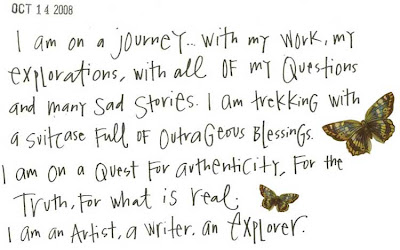 OCT 14 2008
I am on a journey... with my work, my
explorations, with all OF my Questions
and many Sad Stories. I am trekking with
a suitcase Full OF OutraGeous Blessings.
I am On a Quest For authenticity, For the
Truth, For what is real.
I am an Artist, a writer. an explorer.